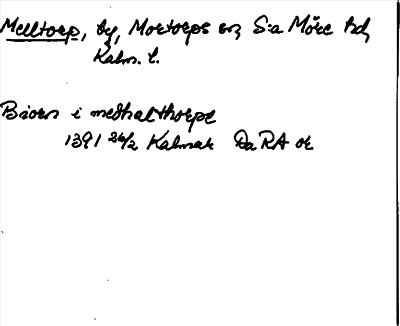 Melltorp, by, Mortorps sn, S:a Möre hd,
Kalm. l.
Biorn i medhalthorpe
1391 26/2 Kalmar DaRA or